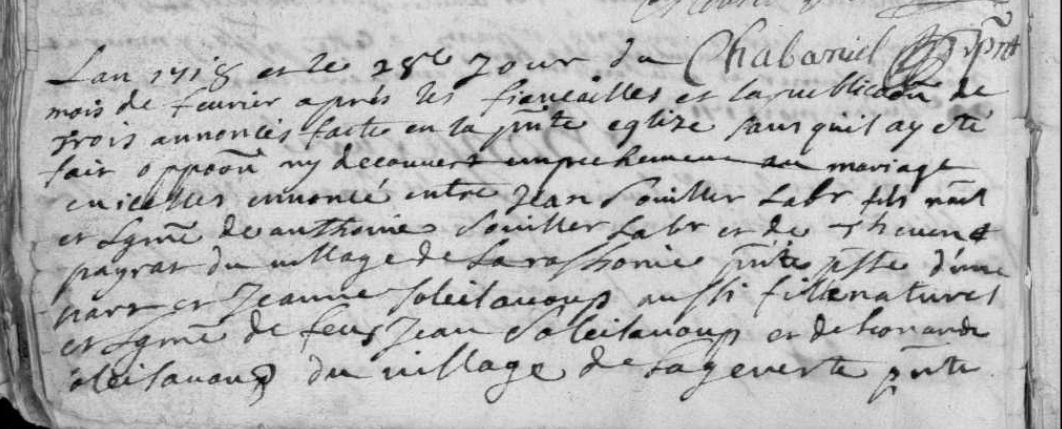 Lan 1718 et le 28e Jour du Chabaniel
mois de feuvrier aprés les fiancailles et la publicaon de
trois annonces faite en la pnte eglize sans qu'il ay eté
fait oppoon ny decouvert empechement au mariage
en icelles ennoncé entre Jean Souiller Labr fils natl
et Lgme de anthoine Souiller Labr et de Thevene
payrat du village de pnte psse d'une
part et Jeanne Soleilauoup aussi fille naturel
et Lgme de feus Jean Soleilauoup et de Leonarde
oleilauoup du village de Lageneste pnte